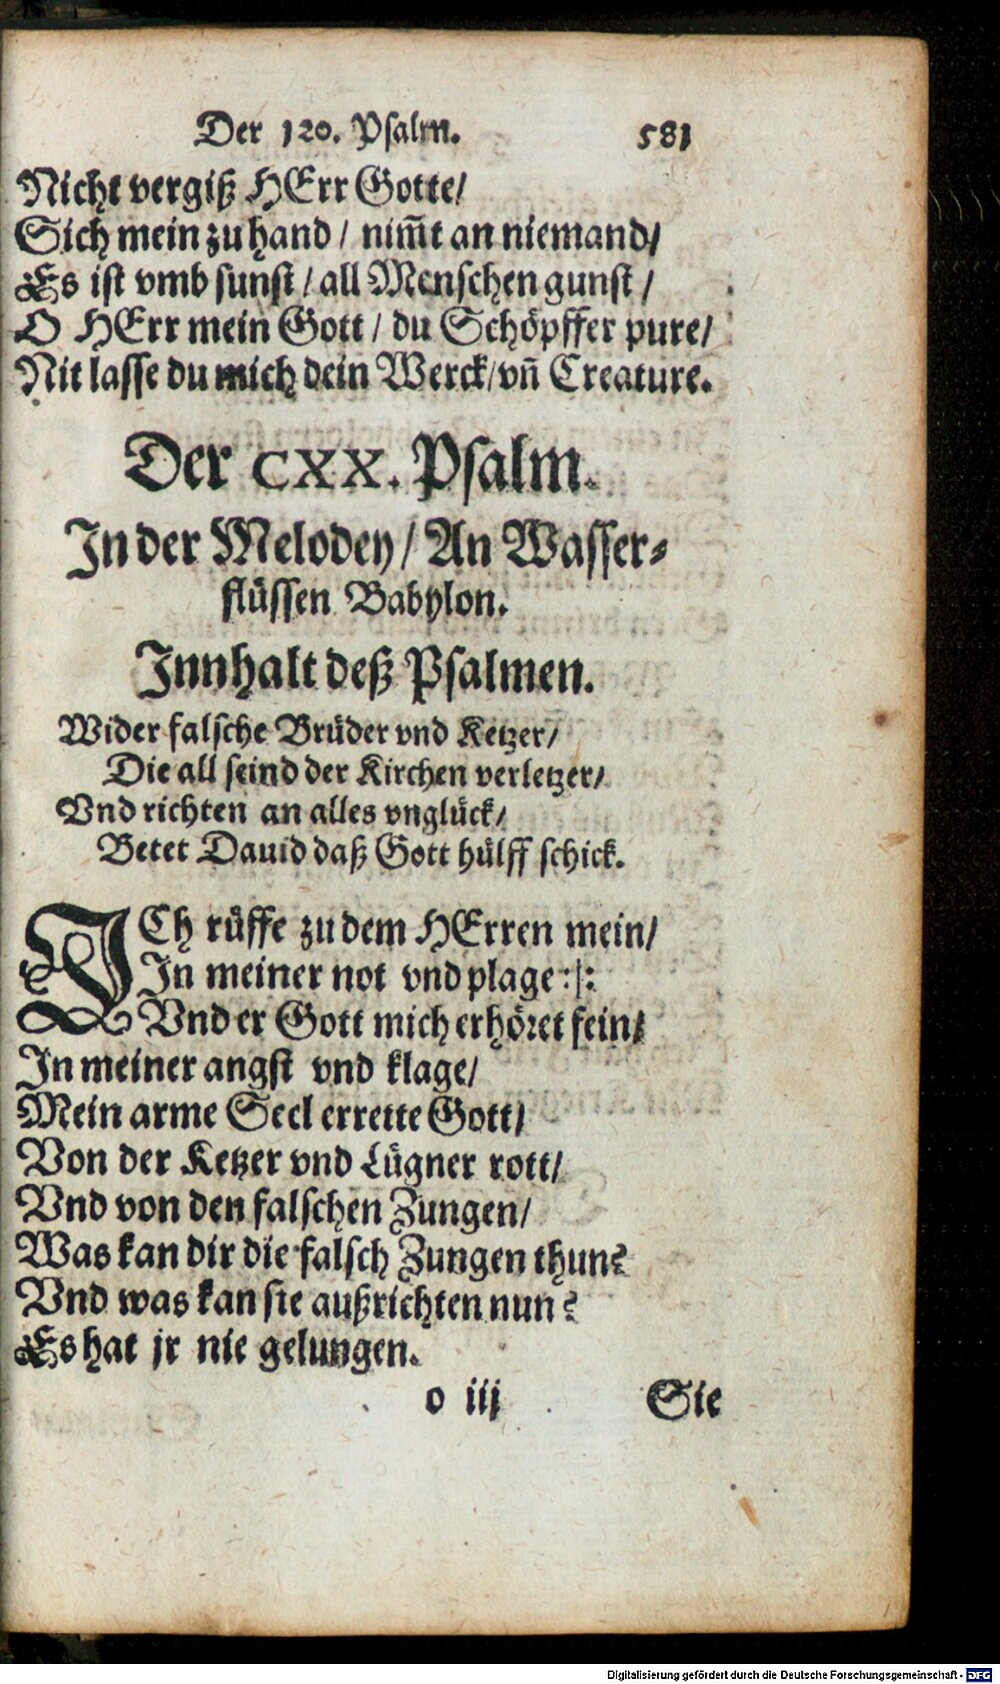 Der 120. Psalm. 581
Nicht vergiß HErr Gotte/
Sich mein zu hand / nim̃t an niemand/
Es ist vmb sunst / all Menschen gunst /
O HErr mein Gott / du Schöpffer pure/
Nit lasse du mich dein Werck/ vñ Creature.
Der CXX. Psalm.
In der Melodey / An Wasser-
flüssen Babylon.
Innhalt deß Psalmen.
Wider falsche Brüder vnd Ketzer/
Die all seind der Kirchen verletzer/
Vnd richten an alles vnglück/
Betet Dauid daß Gott hülff schick.
ICh rüffe zu dem HErren mein/
In meiner not vnd plage :|:
Vnd er Gott mich erhöret fein/
In meiner angst vnd klage/
Mein arme Seel errette Gott/
Von der Ketzer vnd Lügner rott/
Vnd von den falschen Zungen/
Was kan dir die falsch Zungen thun?
Vnd was kan sie außrichten nun?
Es hat jr nie gelungen.
o iij Sie
Digitalisierung gefördert durch die Deutsche Forschungsgemeinschaft - DFG